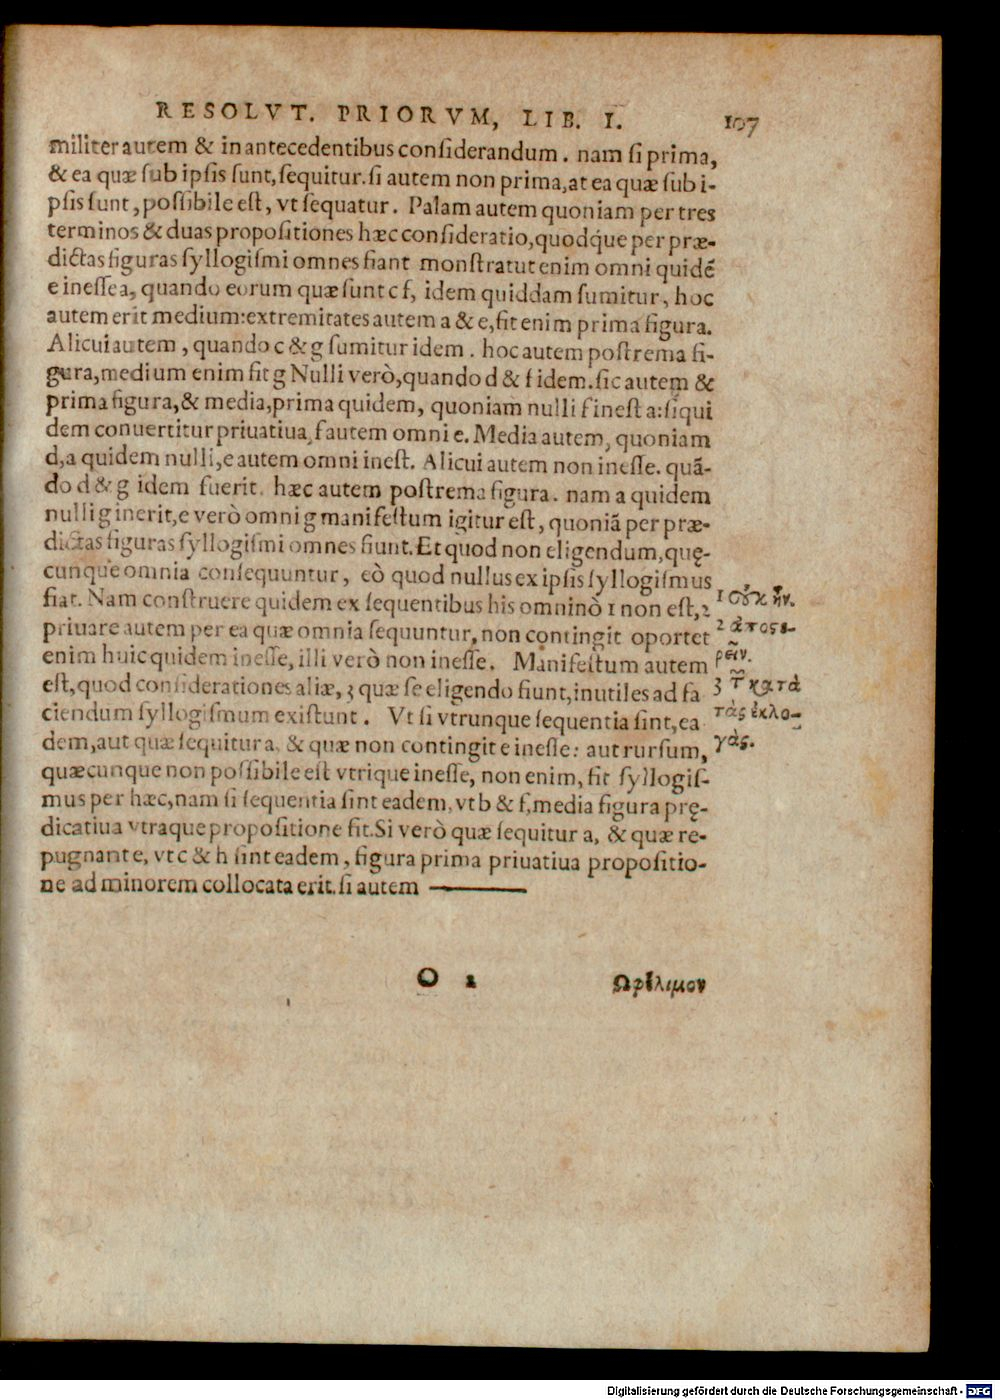 RESOLVT. PRIORVM, LIB. I. 107
militer autem & in antecedentibus considerandum. nam si prima,
& ea quæ sub ipsis sunt, sequitur. si autem non prima, at ea quæ sub i-
psis sunt, possibile est, vt sequatur. Palam autem quoniam per tres
terminos & duas propositiones hæc consideratio, quodq́ue per præ-
dictas figuras syllogismi omnes fiant monstratut enim omni quidẽ
e inesse a, quando eorum quæ sunt c f, idem quiddam sumitur, hoc
autem erit medium: extremitates autem a & e, fit enim prima figura.
Alicui autem, quando c & g sumitur idem. hoc autem postrema fi-
gura, medium enim fit g Nulli verò, quando d & f idem. sic autem &
prima figura, & media, prima quidem, quoniam nulli f inest a: siqui
dem conuertitur priuatiua, f autem omni e. Media autem, quoniam
d, a quidem nulli, e autem omni inest. Alicui autem non inesse. quã-
do d & g idem fuerit. hæc autem postrema figura. nam a quidem
nulli g inerit, e verò omni g manifestum igitur est, quoniã per præ-
dictas figuras syllogismi omnes fiunt. Et quod non eligendum, quę-
cunque omnia consequuntur, eò quod nullus ex ipsis syllogismus
fiat. Nam construere quidem ex sequentibus his omninò 1 non est, 2
priuare autem per ea quæ omnia sequuntur, non contingit oportet
enim huic quidem inesse, illi verò non inesse. Manifestum autem
est, quod considerationes aliæ, 3 quæ se eligendo fiunt, inutiles ad fa
ciendum syllogismum existunt. Vt si vtrunque sequentia sint, ea
dem, aut quæ sequitur a, & quæ non contingit e inesse: aut rursum,
quæcunque non possibile est vtrique inesse, non enim, fit syllogis-
mus per hæc, nam si sequentia sint eadem, vt b & f, media figura prę-
dicatiua vtraque propositione fit. Si verò quæ sequitur a, & quæ re-
pugnant e, vt c & h sint eadem, figura prima priuatiua propositio-
ne ad minorem collocata erit. si autem
1 οὐκ ἦν.
2 ἀποςε-
ρεῖν.
3 κατὰ
τὰς ἐκλο-
γὰς.
O 2 Ωφέλιμον
Digitalisierung gefördert durch die Deutsche Forschungsgemeinschaft - DFG